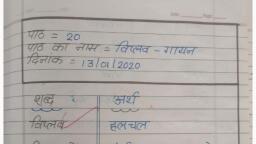 पाठ = 20
पाठ का नाम = विप्लव - गायन
दिनांक = 13/01/2020
शब्द : अर्थ
विप्लव हलचल